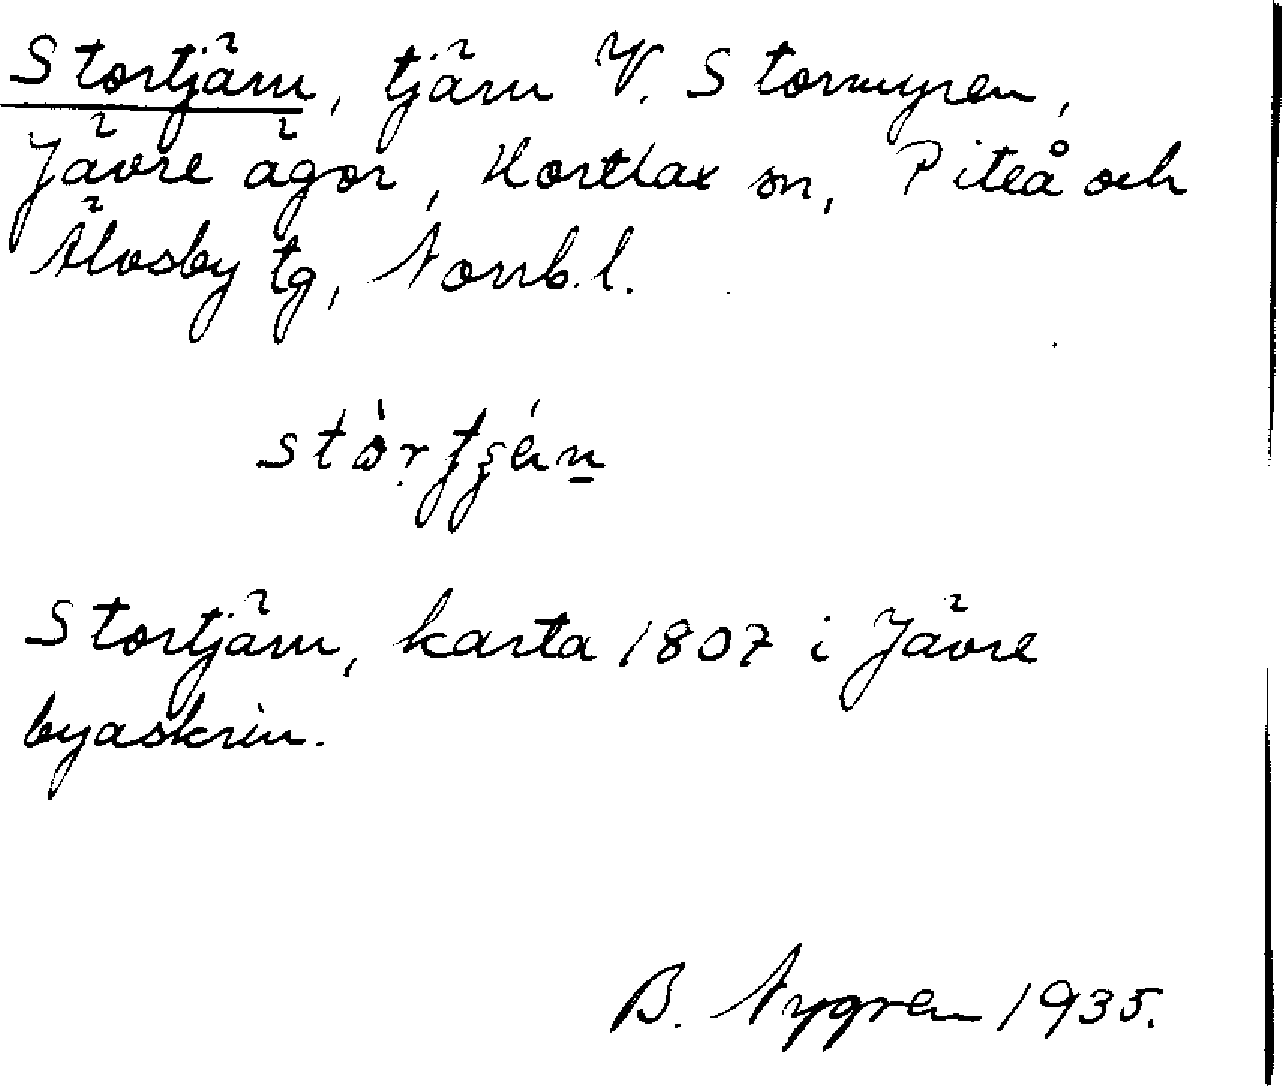 Stortjärn, tjärn V. Stormyren,
Jävre ägor, Hortlax sn, Piteå och
Älvsby tg, Norrb. l.
Stortjärn, karta 1807 i Jävre
byaskrin.
B. Nygren 1935.